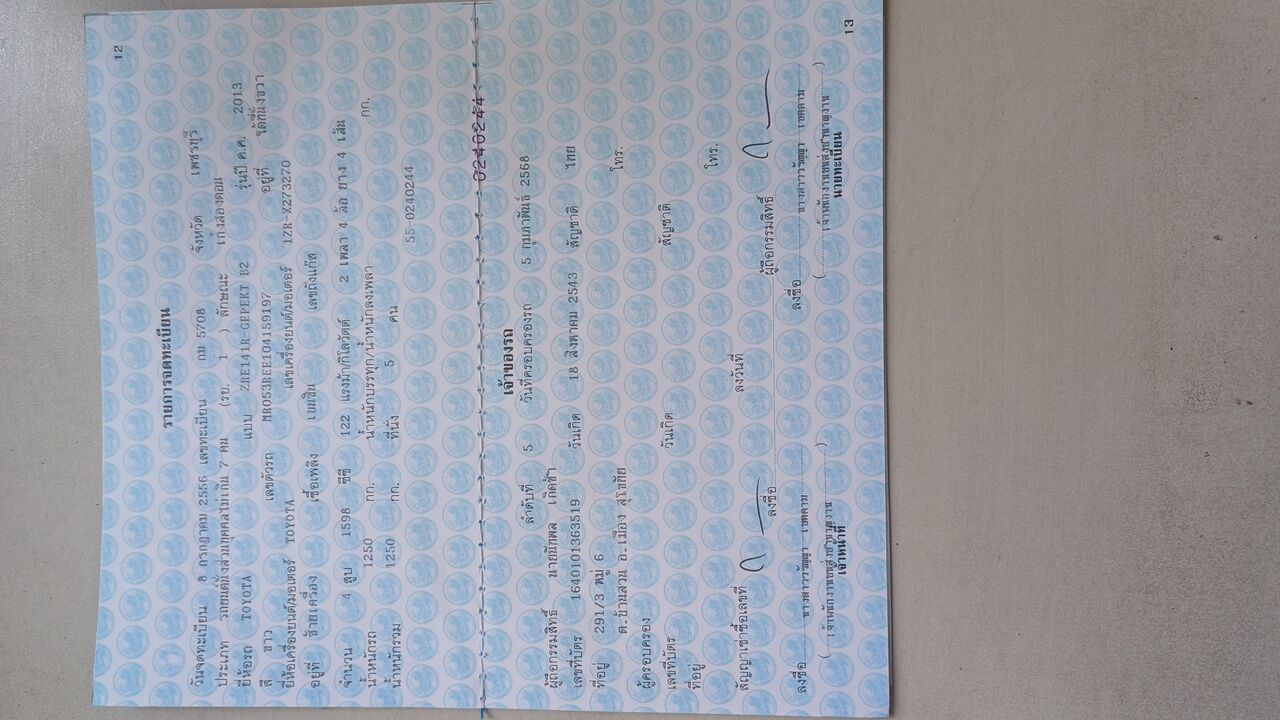 12
รายการจดทะเบียน
วันจดทะเบียน 8 กรกฎาคม 2556 เลขทะเบียน กม 5708 จังหวัด เพชรบุรี
ประเภท รถยนต์นั่งส่วนบุคคลไม่เกิน 7 คน (รย. 1 ) ลักษณะ เก๋งสองตอน
ยี่ห้อรถ TOYOTA แบบ ZRE141R-GEPEKT B2 รุ่นปี ค.ศ. 2013
สี ขาว เลขตัวรถ MR053REE104159197 อยู่ที่ ใต้ที่นั่งขวา
ยี่ห้อเครื่องยนต์/มอเตอร์ TOYOTA เลขเครื่องยนต์/มอเตอร์ 1ZR-X273270
อยู่ที่ ซ้ายเครื่อง เชื้อเพลิง เบนซิน เลขถังแก๊ส
จำนวน 4 สูบ 1598 ซีซี 122 แรงม้า/กิโลวัตต์ 2 เพลา 4 ล้อ ยาง 4 เส้น
น้ำหนักรถ 1250 กก. น้ำหนักบรรทุก/น้ำหนักลงเพลา กก.
น้ำหนักรวม 1250 กก. ที่นั่ง 5 คน
55-0240244
0240244
เจ้าของรถ
ลำดับที่ 5 วันที่ครอบครองรถ 5 กุมภาพันธ์ 2568
ผู้ถือกรรมสิทธิ์ นายนัทพล เกิดช้ำ
เลขที่บัตร 1640101363519 วันเกิด 18 สิงหาคม 2543 สัญชาติ ไทย
ที่อยู่ 291/3 หมู่ 6 โทร.
ต.บ้านสวน อ.เมือง สุโขทัย
ผู้ครอบครอง
เลขที่บัตร วันเกิด สัญชาติ
ที่อยู่ โทร.
สัญญาเช่าซื้อเลขที่ ลงวันที่
ลงชื่อ ผู้ถือกรรมสิทธิ์
ลงชื่อ นางสาววรัญญา เขตคาม ลงชื่อ นางสาววรัญญา เขตคาม
( เจ้าพนักงานขนส่งชำนาญงาน ) ( เจ้าพนักงานขนส่งชำนาญงาน )
เจ้าหน้าที่ นายทะเบียน
13